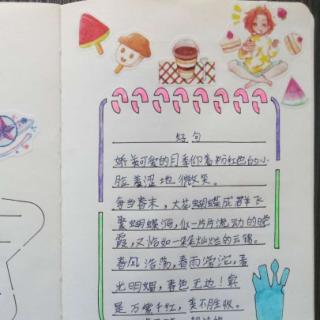 好句
娇美可爱的月季仰着粉红色的小
脸羞涩地微笑。
每当春末,大片蝴蝶成群飞
聚蝴蝶涧,似一片片流动的晚
霞,又恰如一朵朵灿烂的云锦。
春风浩荡,春雨滂沱,
出明媚,春色无边!
是万紫千红,美不胜收。